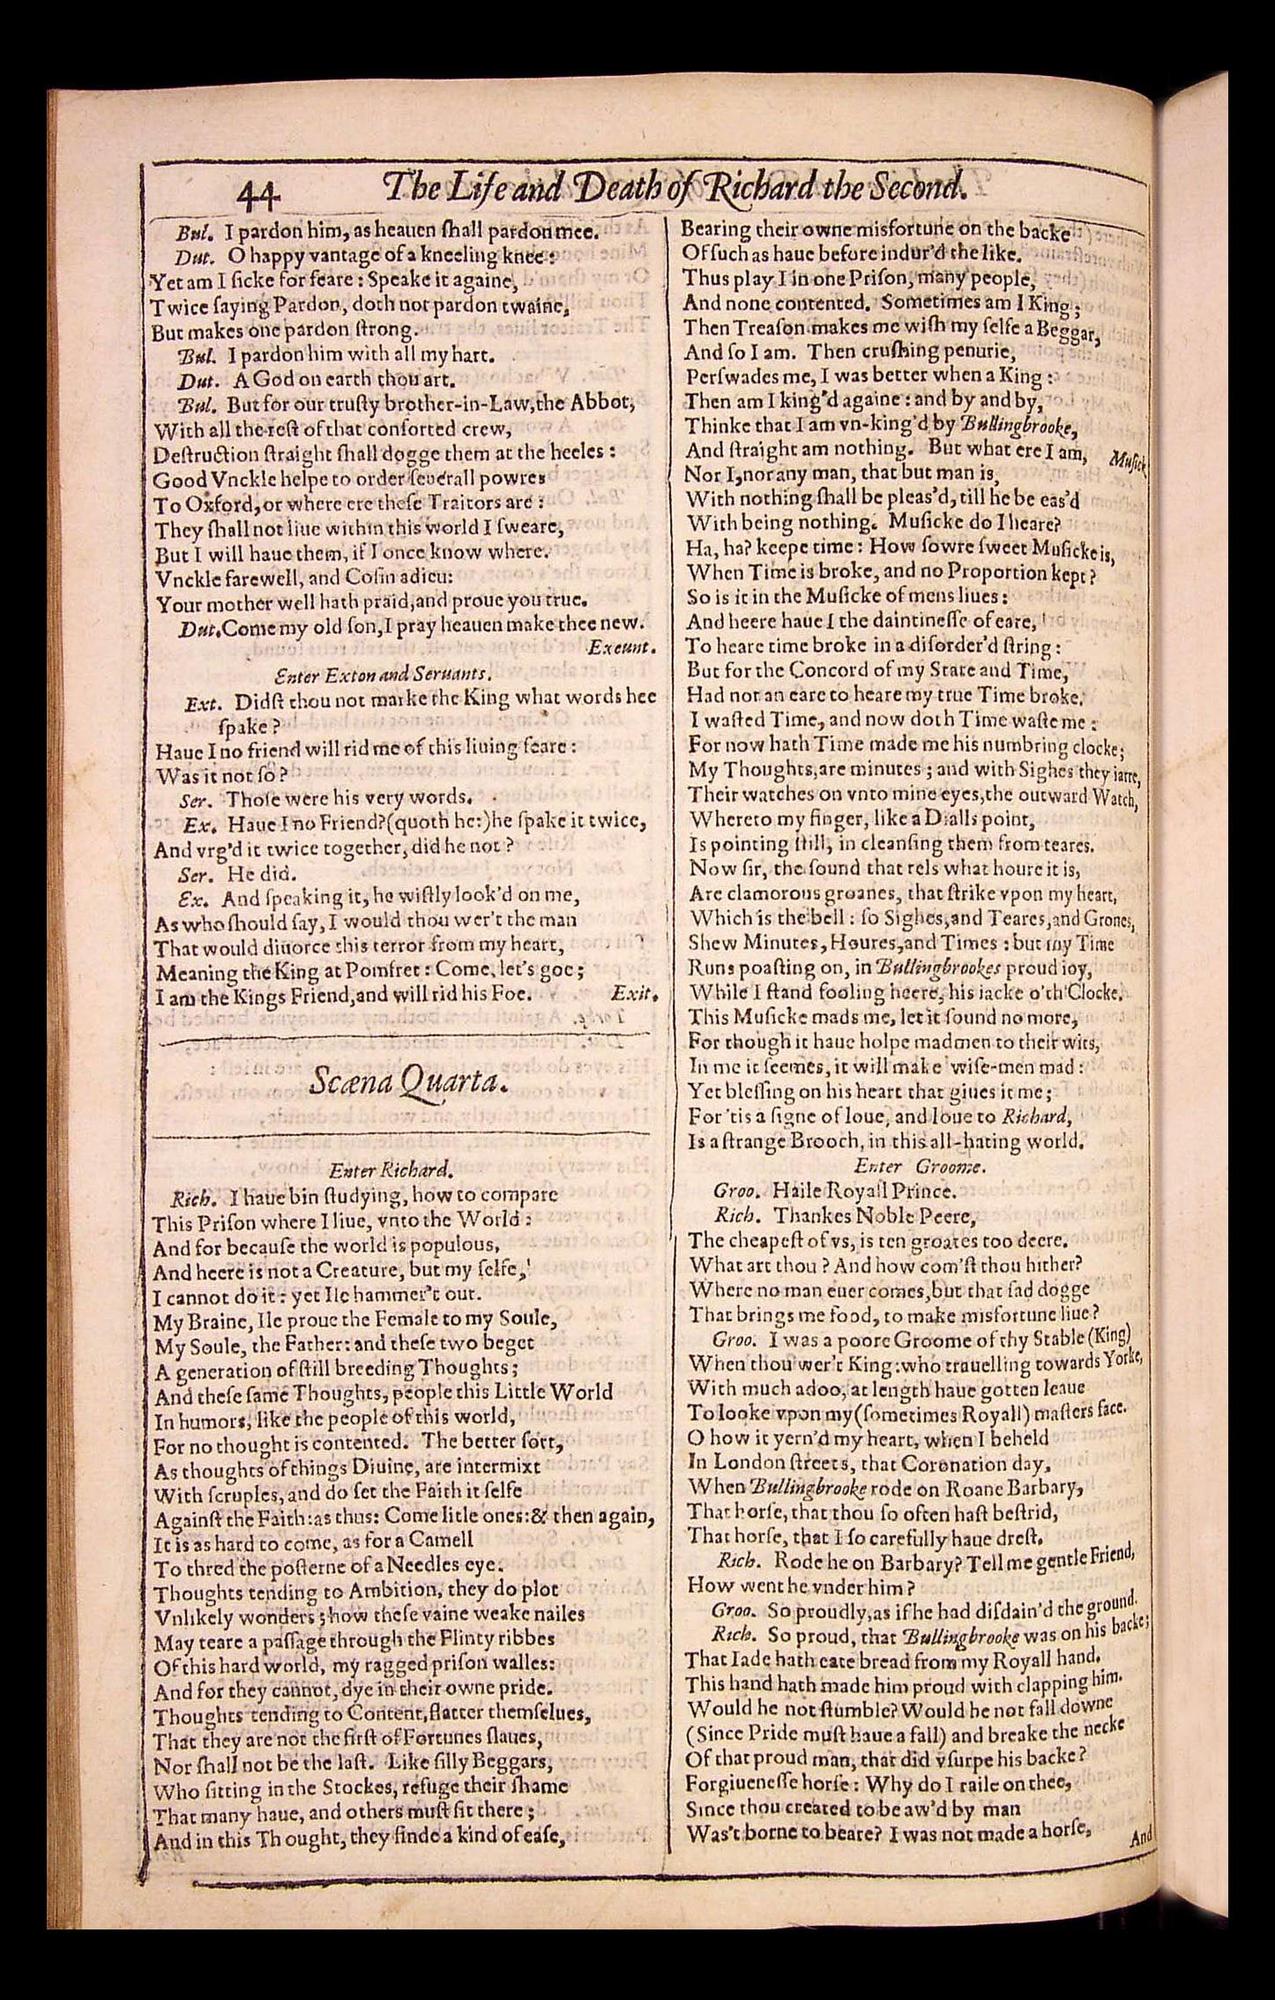 44 The Life and Death of Richard the Second.
Bul. I pardon him, as heauen ſhall pardon mee.
Dut. O happy vantage of a kneeling knee:
Yet am I ſicke for feare: Speake it againe,
Twice ſaying Pardon, doth not pardon twaine,
But makes one pardon ſtrong.
Bul. I pardon him with all my hart.
Dut. A God on earth thou art.
Bul. But for our truſty brother-in-Law, the Abbot,
With all the reſt of that conſorted crew,
Deſtruction ſtraight ſhall dogge them at the heeles:
Good Vnckle helpe to order ſeuerall powres
To Oxford, or where ere theſe Traitors are:
They ſhall not liue within this world I ſweare,
But I will haue them, if I once know where.
Vnckle farewell, and Coſin adieu:
Your mother well hath praid, and proue you true.
Dut. Come my old ſon, I pray heauen make thee new.
Exeunt.
Enter Exton and Seruants.
Ext. Didſt thou not marke the King what words hee
ſpake?
Haue I no friend will rid me of this liuing feare:
Was it not ſo?
Ser. Thoſe were his very words.
Ex. Haue I no Friend? (quoth he:) he ſpake it twice,
And vrg'd it twice together, did he not?
Ser. He did.
Ex. And ſpeaking it, he wiſtly look'd on me,
As who ſhould ſay, I would thou wer't the man
That would diuorce this terror from my heart,
Meaning the King at Pomfret: Come, let's goe;
I am the Kings Friend, and will rid his Foe. Exit.
Scæna Quarta.
Enter Richard.
Rich. I haue bin ſtudying, how to compare
This Priſon where I liue, vnto the World:
And for becauſe the world is populous,
And heere is not a Creature, but my ſelfe,
I cannot do it: yet Ile hammer't out.
My Braine, Ile proue the Female to my Soule,
My Soule, the Father: and theſe two beget
A generation of ſtill breeding Thoughts;
And theſe ſame Thoughts, people this Little World
In humors, like the people of this world,
For no thought is contented. The better ſort,
As thoughts of things Diuine, are intermixt
With ſcruples, and do ſet the Faith it ſelfe
Againſt the Faith: as thus: Come litle ones: & then again,
It is as hard to come, as for a Camell
To thred the poſterne of a Needles eye.
Thoughts tending to Ambition, they do plot
Vnlikely wonders; how theſe vaine weake nailes
May teare a paſſage through the Flinty ribbes
Of this hard world, my ragged priſon walles:
And for they cannot, dye in their owne pride.
Thoughts tending to Content, flatter themſelues,
That they are not the firſt of Fortunes ſlaues,
Nor ſhall not be the laſt. Like ſilly Beggars,
Who ſitting in the Stockes, refuge their ſhame
That many haue, and others muſt ſit there;
And in this Thought, they finde a kind of eaſe,
Bearing their owne misfortune on the backe
Of ſuch as haue before indur'd the like.
Thus play I in one Priſon, many people,
And none contented. Sometimes am I King;
Then Treaſon makes me wiſh my ſelfe a Beggar,
And ſo I am. Then cruſhing penurie,
Perſwades me, I was better when a King:
Then am I king'd againe: and by and by,
Thinke that I am vn-king'd by Bullingbrooke,
And ſtraight am nothing. But what ere I am, Musick
Nor I, nor any man, that but man is,
With nothing ſhall be pleas'd, till he be eas'd
With being nothing. Muſicke do I heare?
Ha, ha? keepe time: How ſowre ſweet Muſicke is,
When Time is broke, and no Proportion kept?
So is it in the Muſicke of mens liues:
And heere haue I the daintineſſe of eare,
To heare time broke in a diſorder'd ſtring:
But for the Concord of my State and Time,
Had not an eare to heare my true Time broke.
I waſted Time, and now doth Time waſte me:
For now hath Time made me his numbring clocke;
My Thoughts, are minutes; and with Sighes they iarre,
Their watches on vnto mine eyes, the outward Watch,
Whereto my finger, like a Dialls point,
Is pointing ſtill, in cleanſing them from teares.
Now ſir, the ſound that tels what houre it is,
Are clamorous groanes, that ſtrike vpon my heart,
Which is the bell: ſo Sighes, and Teares, and Grones,
Shew Minutes, Houres, and Times: but my Time
Runs poaſting on, in Bullingbrookes proud ioy,
While I ſtand fooling heere, his iacke o'th'Clocke.
This Muſicke mads me, let it ſound no more,
For though it haue holpe madmen to their wits,
In me it ſeemes, it will make wiſe-men mad:
Yet bleſſing on his heart that giues it me;
For 'tis a ſigne of loue, and loue to Richard,
Is a ſtrange Brooch, in this all-hating world.
Enter Groome.
Groo. Haile Royall Prince.
Rich. Thankes Noble Peere,
The cheapeſt of vs, is ten groates too deere.
What art thou? And how com'ſt thou hither?
Where no man euer comes, but that ſad dogge
That brings me food, to make misfortune liue?
Groo. I was a poore Groome of thy Stable (King)
When thou wer't King: who trauelling towards Yorke,
With much adoo, at length haue gotten leaue
To looke vpon my (ſometimes Royall) maſters face.
O how it yern'd my heart, when I beheld
In London ſtreets, that Coronation day,
When Bullingbrooke rode on Roane Barbary,
That horſe, that thou ſo often haſt beſtrid,
That horſe, that I ſo carefully haue dreſt.
Rich. Rode he on Barbary? Tell me gentle Friend,
How went he vnder him?
Groo. So proudly, as if he had diſdain'd the ground.
Rich. So proud, that Bullingbrooke was on his backe;
That Iade hath eate bread from my Royall hand.
This hand hath made him proud with clapping him.
Would he not ſtumble? Would he not fall downe
(Since Pride muſt haue a fall) and breake the necke
Of that proud man, that did vſurpe his backe?
Forgiueneſſe horſe: Why do I raile on thee,
Since thou created to be aw'd by man
Was't borne to beare? I was not made a horſe,
And